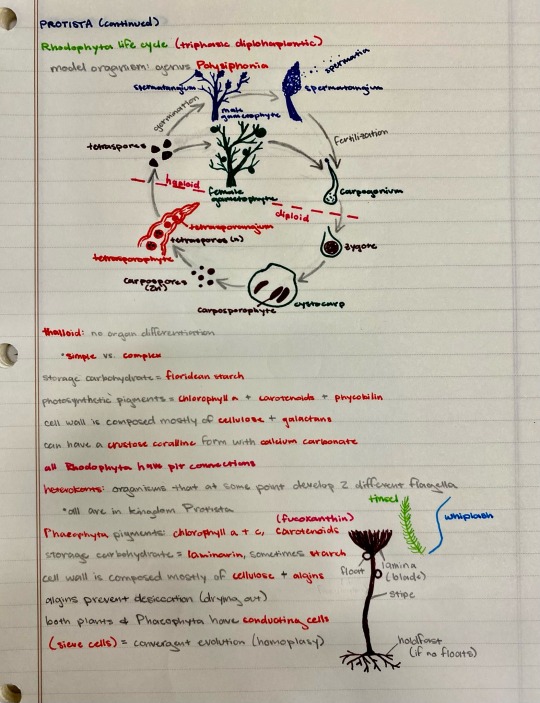 PROTISTA (continued)
Rhodophyta life cycle (triphasic diplohaplontic)
model organism: genus Polysiphonia
spermatangium
spermatia
spermatangium
male gametophyte
germination
fertilization
tetraspores
haploid
female gametophyte
carpogonium
diploid
tetrasporangium
tetraspores (n)
tetrasporophyte
zygote
carpospores (2n)
carposporophyte
cystocarp
thalloid: no organ differentiation
•simple vs. complex
storage carbohydrate = floridean starch
photosynthetic pigments = chlorophyll a + carotenoids + phycobilin
cell wall is composed mostly of cellulose + galactans
can have a crustose coralline form with calcium carbonate
all Rhodophyta have pit connections
heterokonts: organisms that at some point develop 2 different flagella
•all are in kingdom Protista
tinsel
whiplash
(fucoxanthin)
Phaeophyta pigments: chlorophyll a + c, carotenoids
storage carbohydrate = laminarin, sometimes starch
float
lamina (blade)
cell wall is composed mostly of cellulose + algins
algins prevent desiccation (drying out)
stipe
both plants & Phaeophyta have conducting cells
(sieve cells) = convergent evolution (homoplasy)
holdfast
(if no floats)